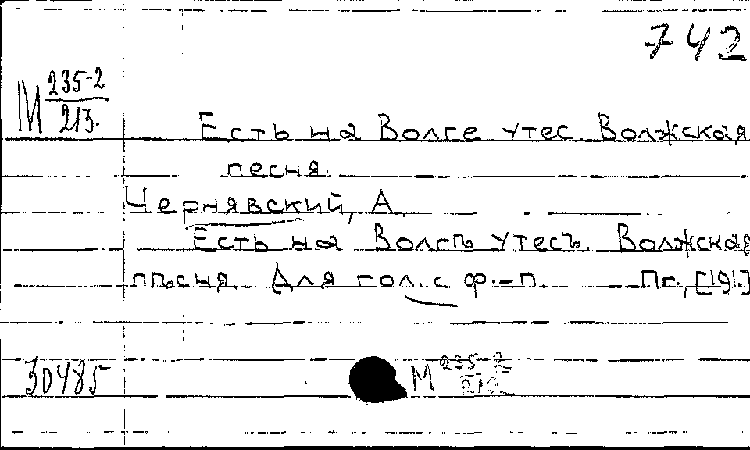 742
М 235-2/213.
Есть на Волге утес. Волжская
песня.
Чернявский, А.
Есть на Волгѣ утесъ. Волжская
пѣсня. Для гол. с ф.-п. Пг., [191.]
30485
М 235-2/213